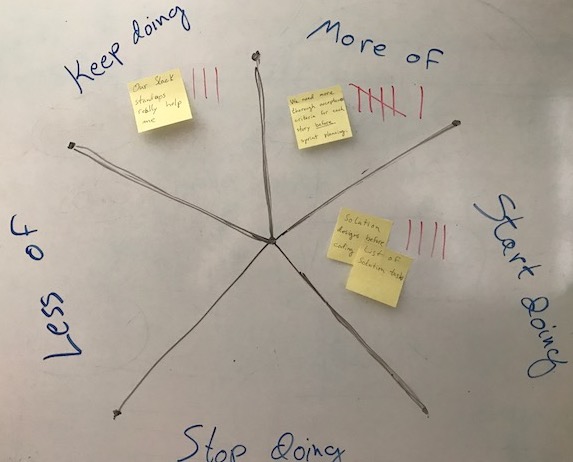 Keep doing
More of
Our Slack
standups
really help
me
We need more
thorough acceptance
criteria for each
story before
sprint planning.
Less of
Start Doing
Solution
designs before
coding
List of
solution tasks
Stop Doing